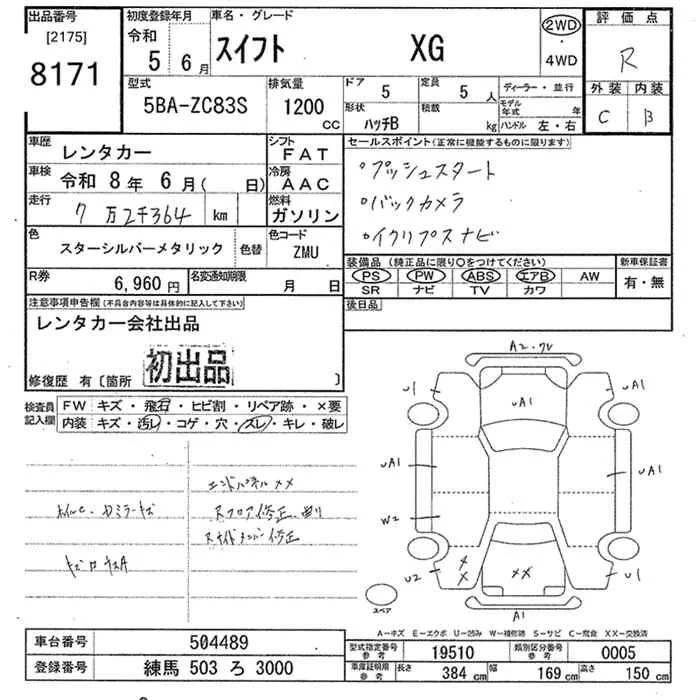 出品番号
[2175]
8171
初度登録年月
令和
5 6月
車名・グレード
スイフト XG
2WD
・
4WD
評価点
R
外装 内装
C B
型式
5BA-ZC83S
排気量
1200
CC
ドア 5
定員 5 人
形状 ハッチB
積載 kg
ディーラー・並行
モデル年式 年
ハンドル 左・右
車歴
レンタカー
シフト
FAT
車検 令和 8年 6月( 日)
冷房
AAC
走行
7万2千364 km
燃料
ガソリン
色
スターシルバーメタリック
色替
色コード
ZMU
R券 6,960円
名変通知期限 月 日
セールスポイント(正常に機能するものに限ります)
・プッシュスタート
・バックカメラ
・イクリプスナビ
装備品(純正品に限り○をつけてください)
PS PW ABS エアB AW
SR ナビ TV カワ
新車保証書
有・無
後日品
注意事項申告欄(不具合内容等は具体的に記入して下さい)
レンタカー会社出品
初出品
修復歴 有〔箇所 〕
検査員
記入欄
FW キズ・飛石・ヒビ割・リペア跡・×要
内装 キズ・汚レ・コゲ・穴・スレ・キレ・破レ
エンドパネル××
Rフロア修正
Rサイドメンバー修正
A2・
U1
UA1
UA1
UA1
UA1
W2
U2
×
×
××
U1
A1
スペア
A-キズ E-エクボ U-凹み W-補修跡 S-サビ C-腐食 XX-交換済
車台番号 504489
登録番号 練馬 503 ろ 3000
型式指定番号
参考
19510
類別区分番号
参考
0005
車庫証明用
参考
長さ 384 cm
幅 169 cm
高さ 150 cm